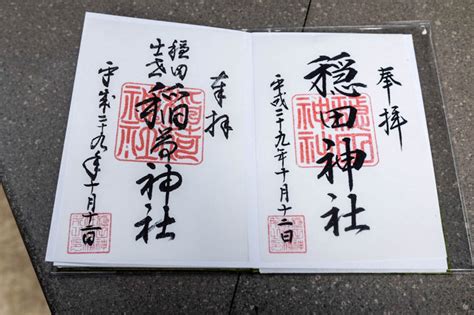 奉拝
穏田神社
平成二十九年十月十二日
奉拝
穏田
出世
稲荷神社
平成二十九年十月十二日